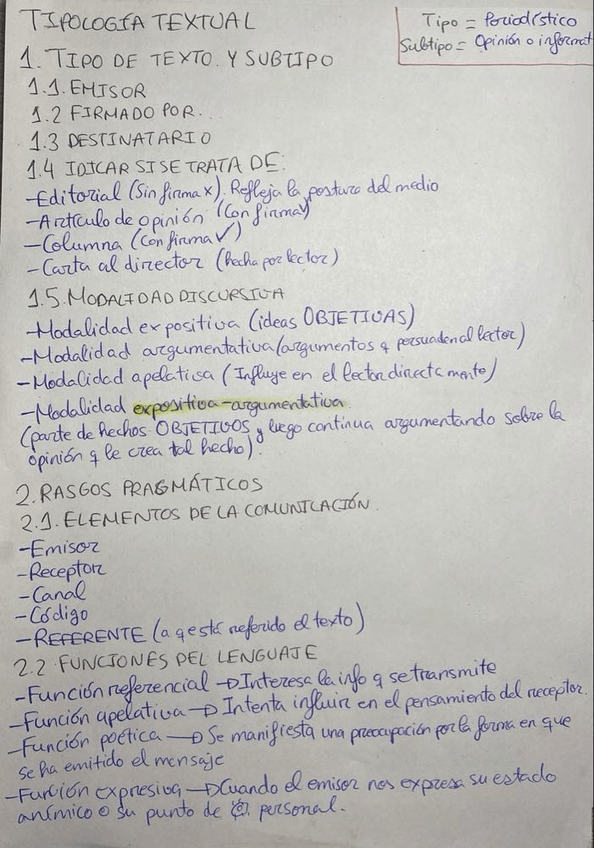 TIPOLOGÍA TEXTUAL
Tipo = Periodístico
Subtipo = Opinión o informat
1. TIPO DE TEXTO Y SUBTIPO
1.1. EMISOR
1.2 FIRMADO POR...
1.3 DESTINATARIO
1.4 IDICAR SI SE TRATA DE:
-Editorial (Sin firma x). Refleja la postura del medio
-Artículo de opinión (Con firma✓)
-Columna (Con firma ✓)
-Carta al director (hecha por lector)
1.5. MODALIDAD DISCURSIVA
-Modalidad expositiva (ideas OBJETIVAS)
-Modalidad argumentativa (argumentos q persuaden al lector)
-Modalidad apelativa (Influye en el lector directamente)
-Modalidad expositiva-argumentativa
(parte de hechos OBJETIVOS y luego continua argumentando sobre la
opinión q le crea tal hecho).
2. RASGOS PRAGMÁTICOS
2.1. ELEMENTOS DE LA COMUNICACIÓN.
-Emisor
-Receptor
-Canal
-Código
-REFERENTE (a q está referido el texto)
2.2 FUNCIONES DEL LENGUAJE
-Función referencial → Interesa la info q se transmite
-Función apelativa → Intenta influir en el pensamiento del receptor.
-Función poética → Se manifiesta una preocupación por la forma en que
se ha emitido el mensaje
-Función expresiva → Cuando el emisor nos expresa su estado
anímico o su punto de personal.